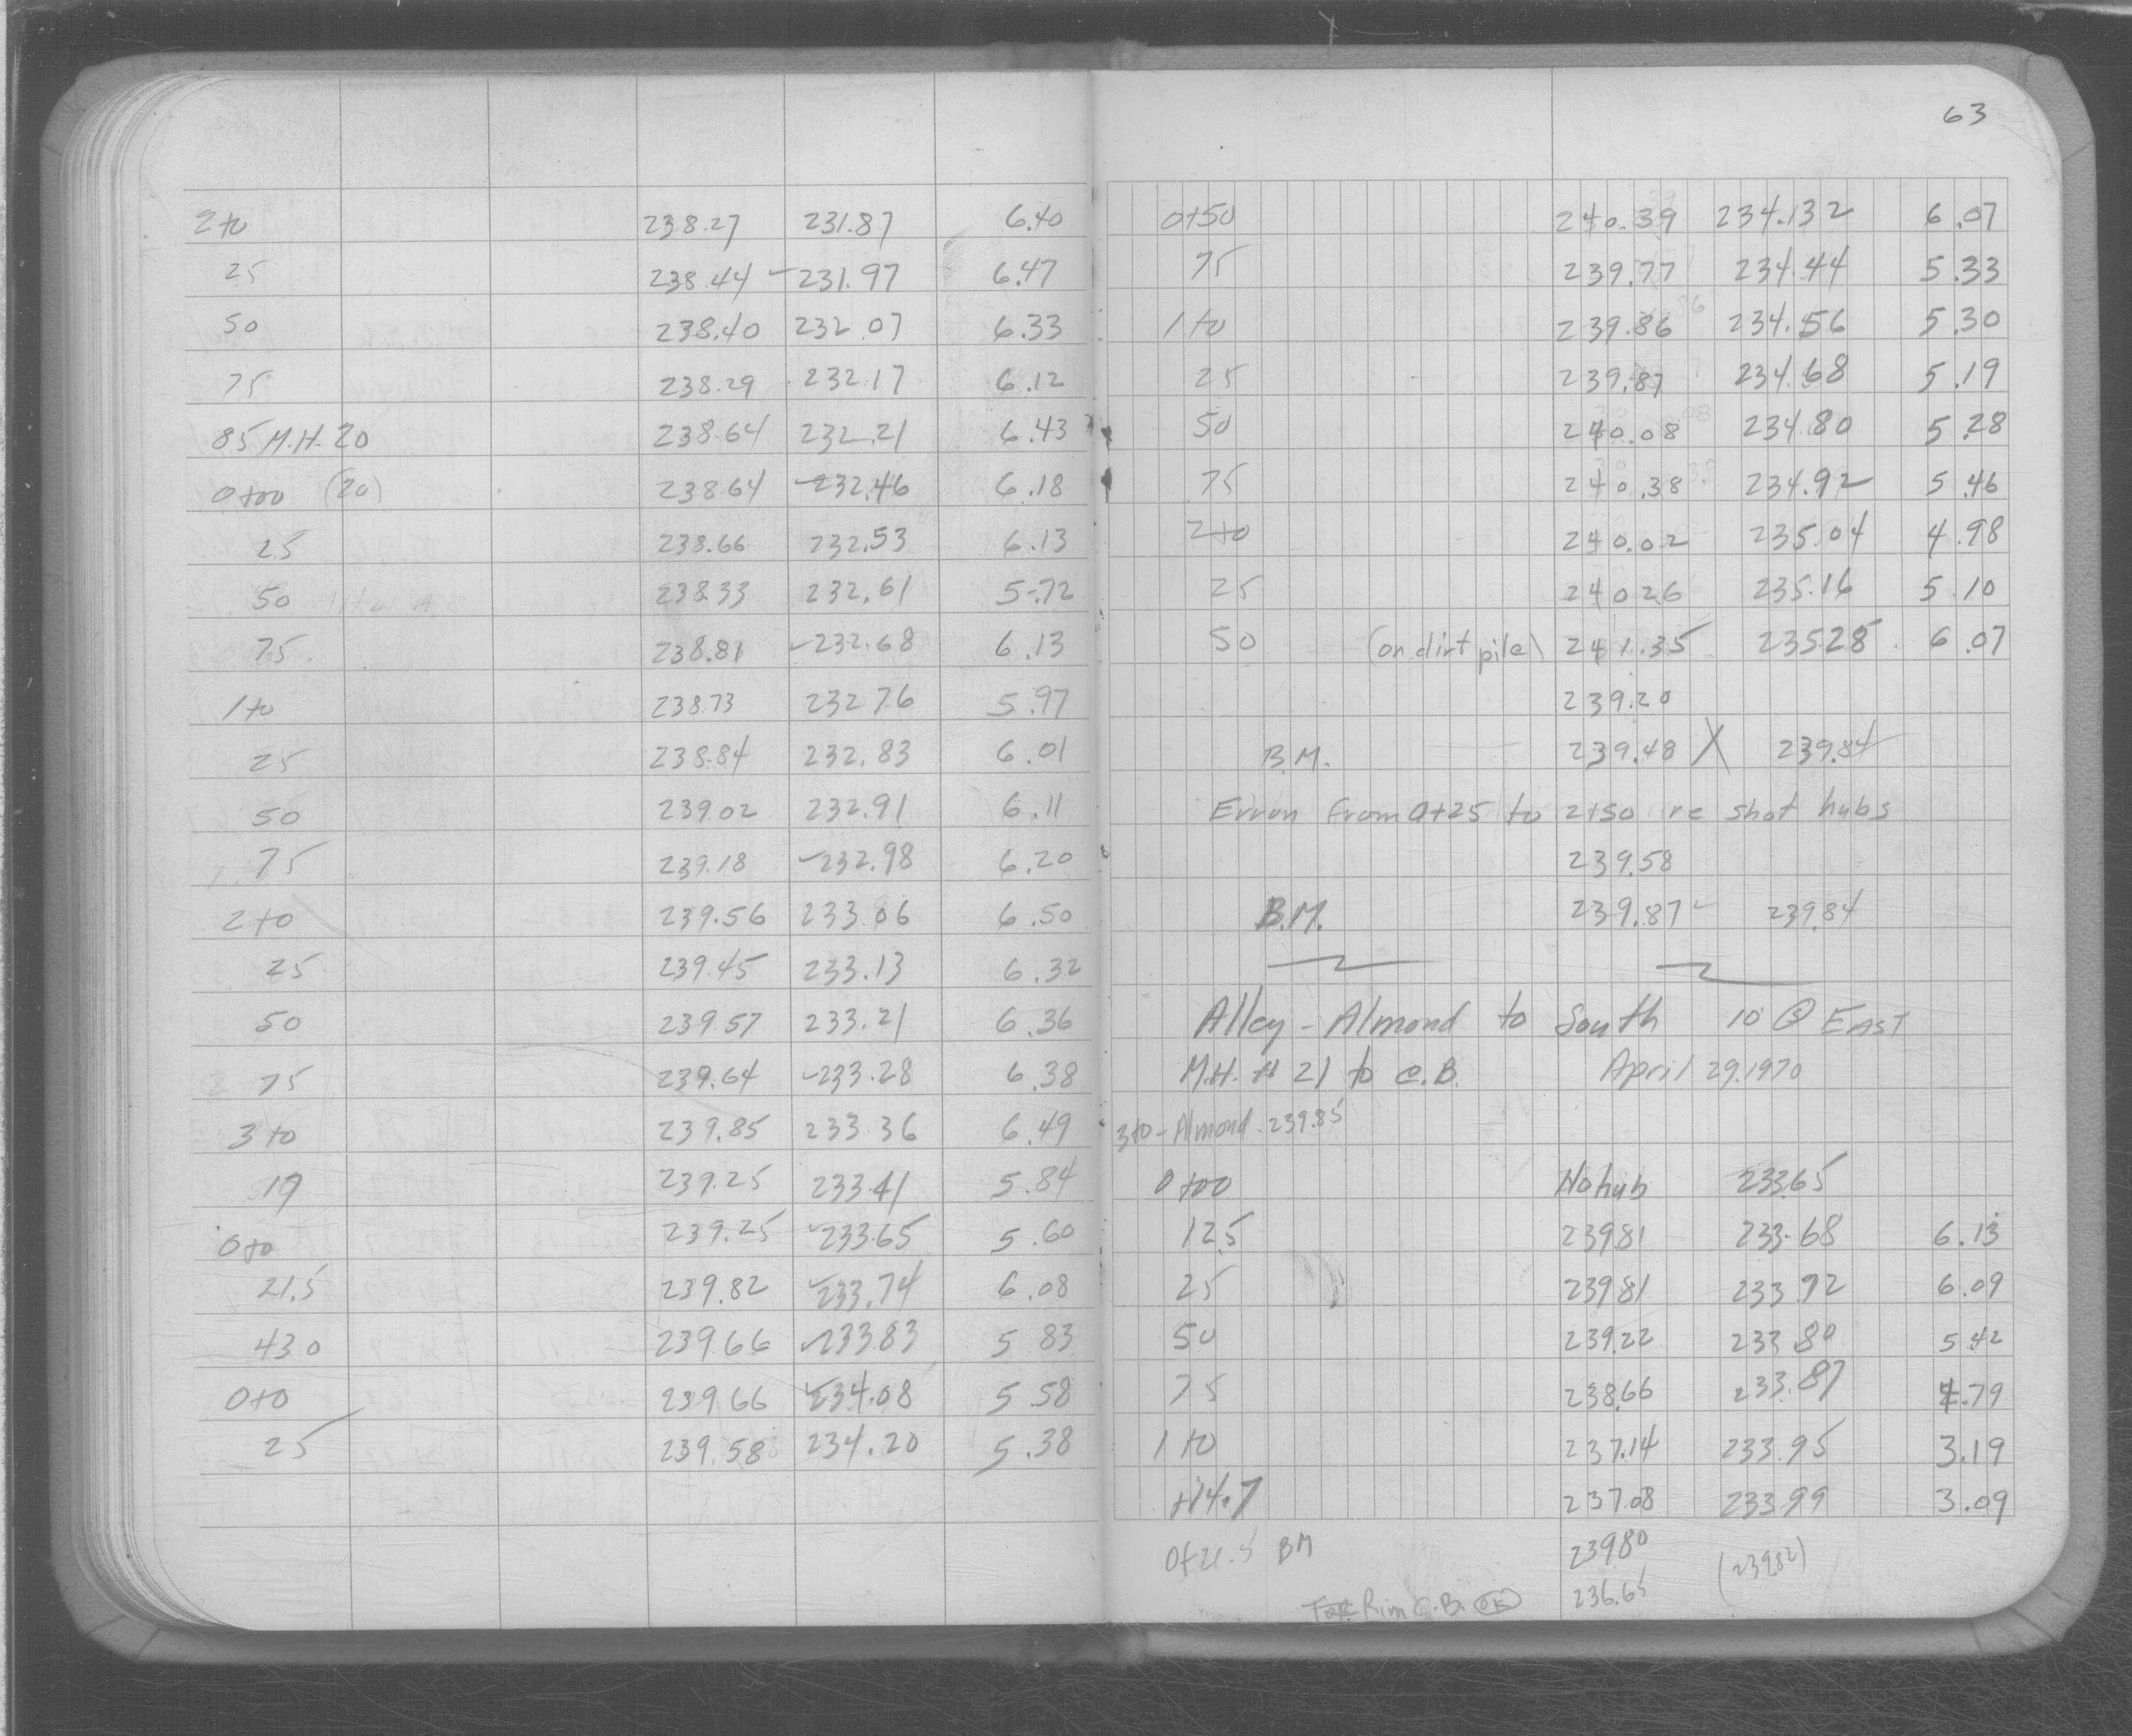 2+0 238.27 231.87 6.40
25 238.44 231.97 6.47
50 238.40 232.07 6.33
75 238.29 232.17 6.12
85 M.H. 20 238.64 232.21 6.43
0+00 (20) 238.64 232.46 6.18
25 238.66 232.53 6.13
50 238.33 232.61 5.72
75 238.81 232.68 6.13
1+0 238.73 232.76 5.97
25 238.84 232.83 6.01
50 239.02 232.91 6.11
75 239.18 232.98 6.20
2+0 239.56 233.06 6.50
25 239.45 233.13 6.32
50 239.57 233.21 6.36
75 239.64 233.28 6.38
3+0 239.85 233.36 6.49
19 239.25 233.41 5.84
0+0 239.25 233.65 5.60
21.5 239.82 233.74 6.08
43.0 239.66 233.83 5.83
0+0 239.66 234.08 5.58
25 239.58 234.20 5.38
63
0+50 240.39 234.132 6.07
75 239.77 234.44 5.33
1+0 239.86 234.56 5.30
25 239.87 234.68 5.19
50 240.08 234.80 5.28
75 240.38 234.92 5.46
2+0 240.02 235.04 4.98
25 240.26 235.16 5.10
50 (on dirt pile) 241.35 235.28 6.07
239.20
B.M. 239.48 X 239.84
Erron from 0+25 to 2+50 re shot hubs
239.58
B.M. 239.87 239.84
Alley - Almond to South 10' @ East
M.H. # 21 to C.B. April 29.1970
3+0 - Almond. 239.85
0+00 No hub 233.65
12.5 239.81 233.68 6.13
25 239.81 233.72 6.09
50 239.22 233.80 5.42
75 238.66 233.87 4.79
1+0 237.14 233.95 3.19
+14.7 237.08 233.99 3.09
0+21.5 BM 239.80 (239.82)
Rim C.B. OK 236.65